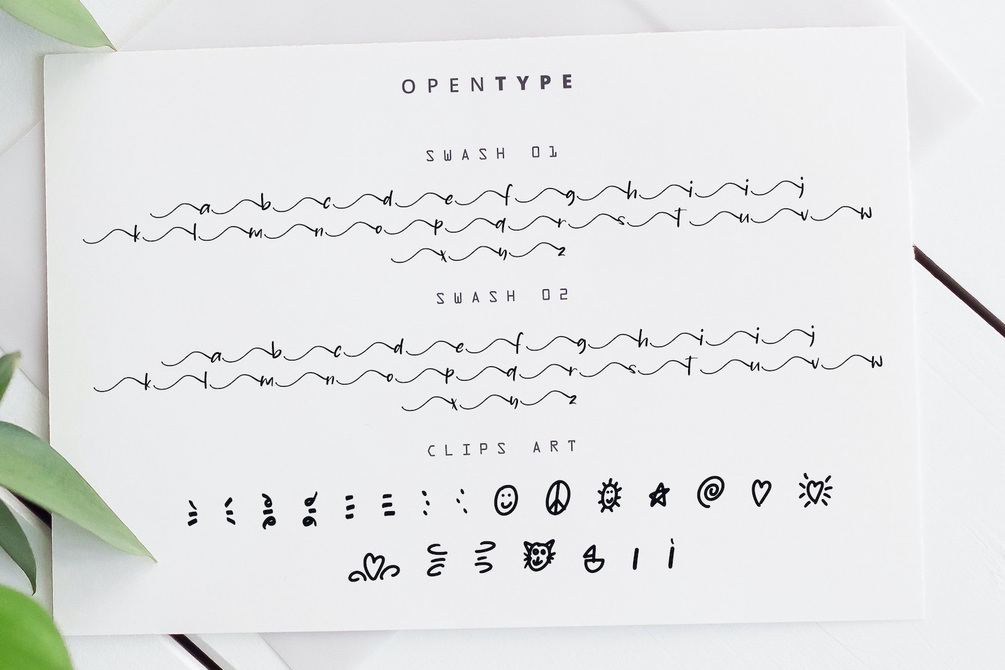 OPENTYPE
SWASH 01
a b c d e f g h i i j
k l m n o p q r s t u v w
x y z
SWASH 02
a b c d e f g h i i j
k l m n o p q r s t u v w
x y z
CLIPS ART